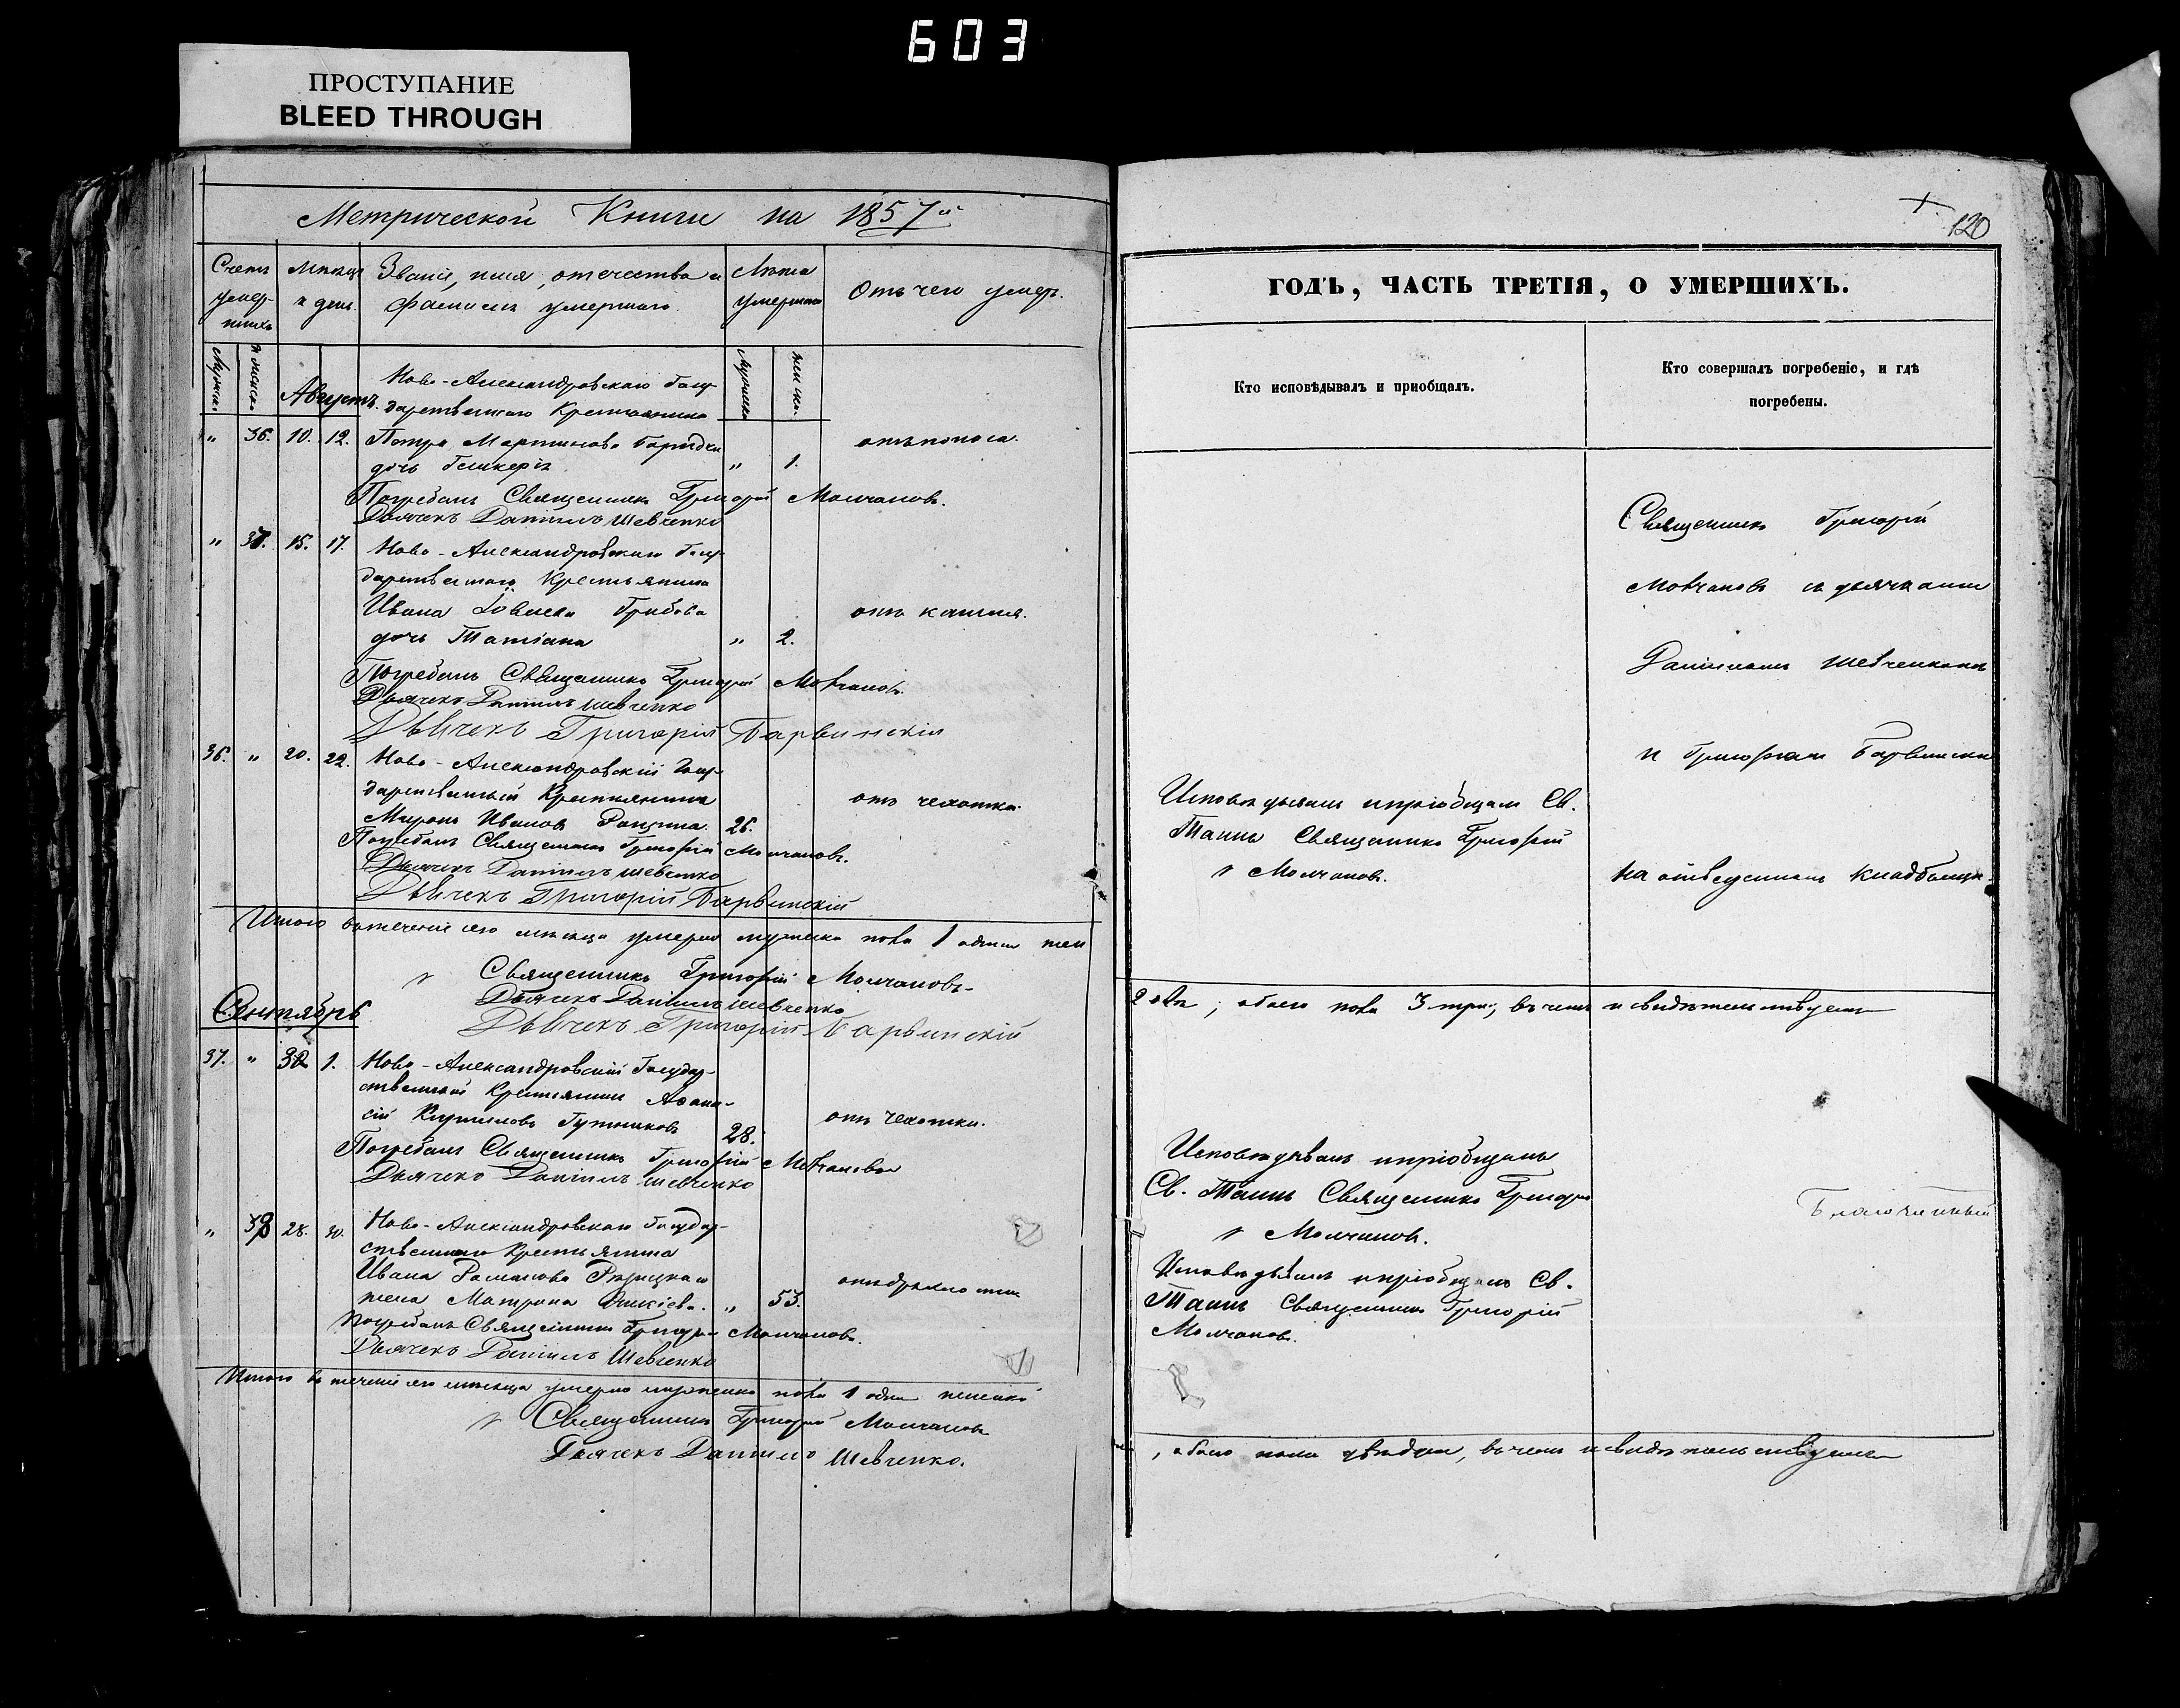 603
ПРОСТУПАНИЕ
BLEED THROUGH
Метрической Книги на 1857й
Счетъ умер-шихъ
Мѣсяцъ и день.
Званіе, имя, отечество и фамилія умершаго.
Лѣта умершаго
Отъ чего умеръ.
Мужеска
Женска
Августъ.
Мужеска
женска.
Ново-Александровскаго Госу-
дарственнаго Крестьянина
" 36. 10. 12. Петра Мартинова
дочь " 1. отъ поноса.
Погребалъ Священникъ Григорій Молчановъ.
Дьячекъ Даніилъ Шевченко
" 37. 15. 17. Ново-Александровскаго Госу-
дарственнаго Крестьянина
Ивана Грибова отъ кашля.
дочь Татіана " 2.
Погребалъ Священникъ Григорій Молчановъ
Дьячекъ Даніилъ Шевченко
Дьячекъ Григорій Барвинскій
36. " 20. 22. Ново-Александровскій Госу-
дарственный Крестьянинъ отъ чахотки.
Миронъ Ивановъ 26.
Погребалъ Священникъ Григорій Молчановъ.
Дьячекъ Даніилъ Шевченко
Дьячекъ Григорій Барвинскій
Итого въ теченіе сего мѣсяца умерло мужеска пола 1 одинъ жен
Священникъ Григорій Молчановъ
Дьячекъ Даніилъ Шевченко
Дьячекъ Григорій Барвинскій
Сентябрь
37. " 1. Ново-Александровскій Государ-
ственный Крестьянинъ Афана-
сій Кириловъ отъ чахотки.
28.
Погребалъ Священникъ Григорій Молчановъ
Дьячекъ Даніилъ Шевченко
" 38 28. 30. Ново-Александровскаго Государ-
ственнаго Крестьянина
Ивана Романова
жена Матрона " 53.
Погребалъ Священникъ Григорій Молчановъ.
Дьячекъ Даніилъ Шевченко
Итого въ теченіе сего мѣсяца умерло мужеска пола 1 одинъ женска
Священникъ Григорій Молчановъ
Дьячекъ Даніилъ Шевченко.
120
ГОДЪ, ЧАСТЬ ТРЕТІЯ, О УМЕРШИХЪ.
Кто исповѣдывалъ и приобщалъ.
Кто совершалъ погребеніе, и гдѣ
погребены.
Священникъ Григорій
Молчановъ съ дьячками
Даніиломъ Шевченкомъ
и Григоріемъ Барвински
на отведенномъ кладбищѣ.
Исповѣдывалъ и пріобщалъ Св.
Таинъ Священникъ Григорій
Молчановъ.
2 двѣ; обоего пола 3 три; въ чемъ и свидѣтельствуемъ
Исповѣдывалъ и пріобщалъ
Св. Таинъ Священникъ Григорій
Молчановъ.
Благочинный
Исповѣдывалъ и пріобщалъ Св.
Таинъ Священникъ Григорій
Молчановъ.
, обоего пола двѣ души, въ чемъ и свидѣтельствуемъ